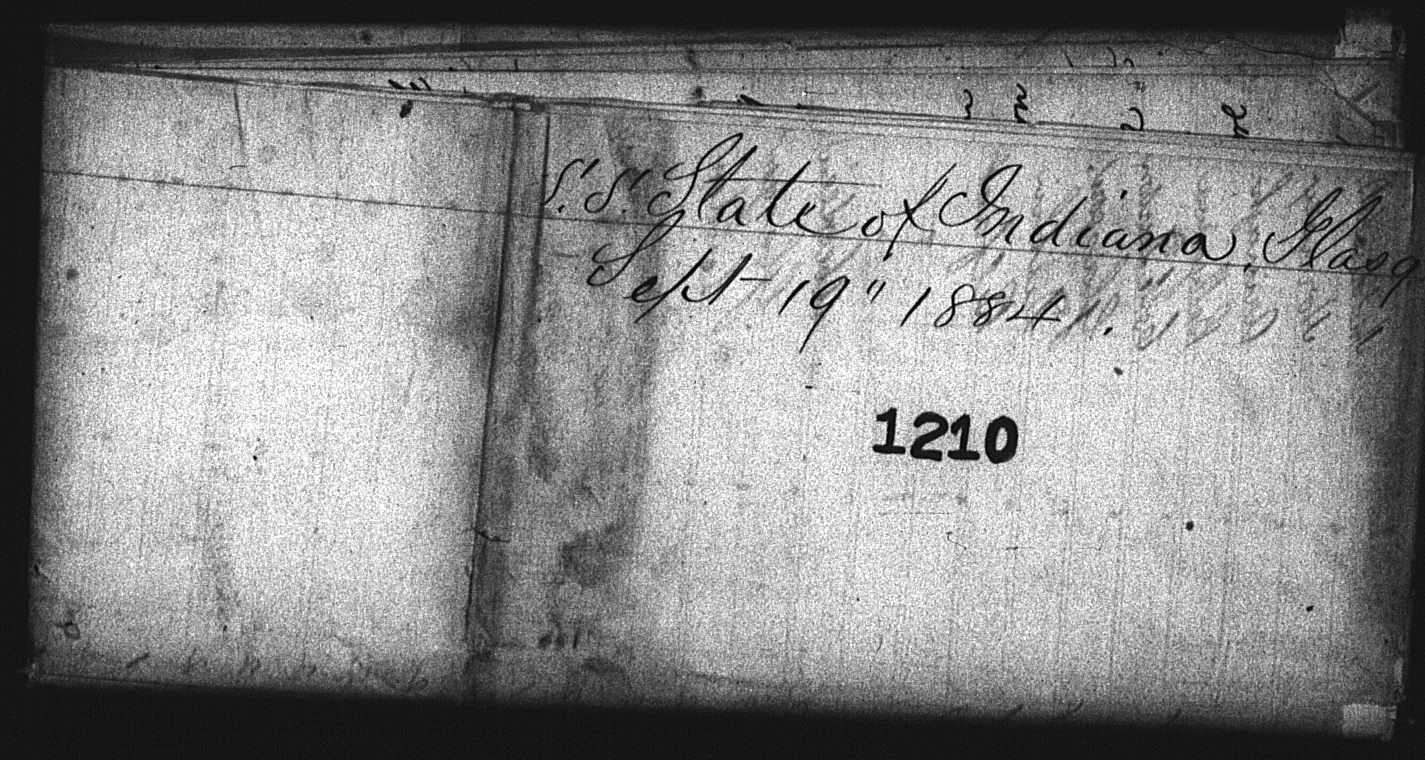 S.S. State of Indiana. Glasg
Sept 19" 1884.
1210